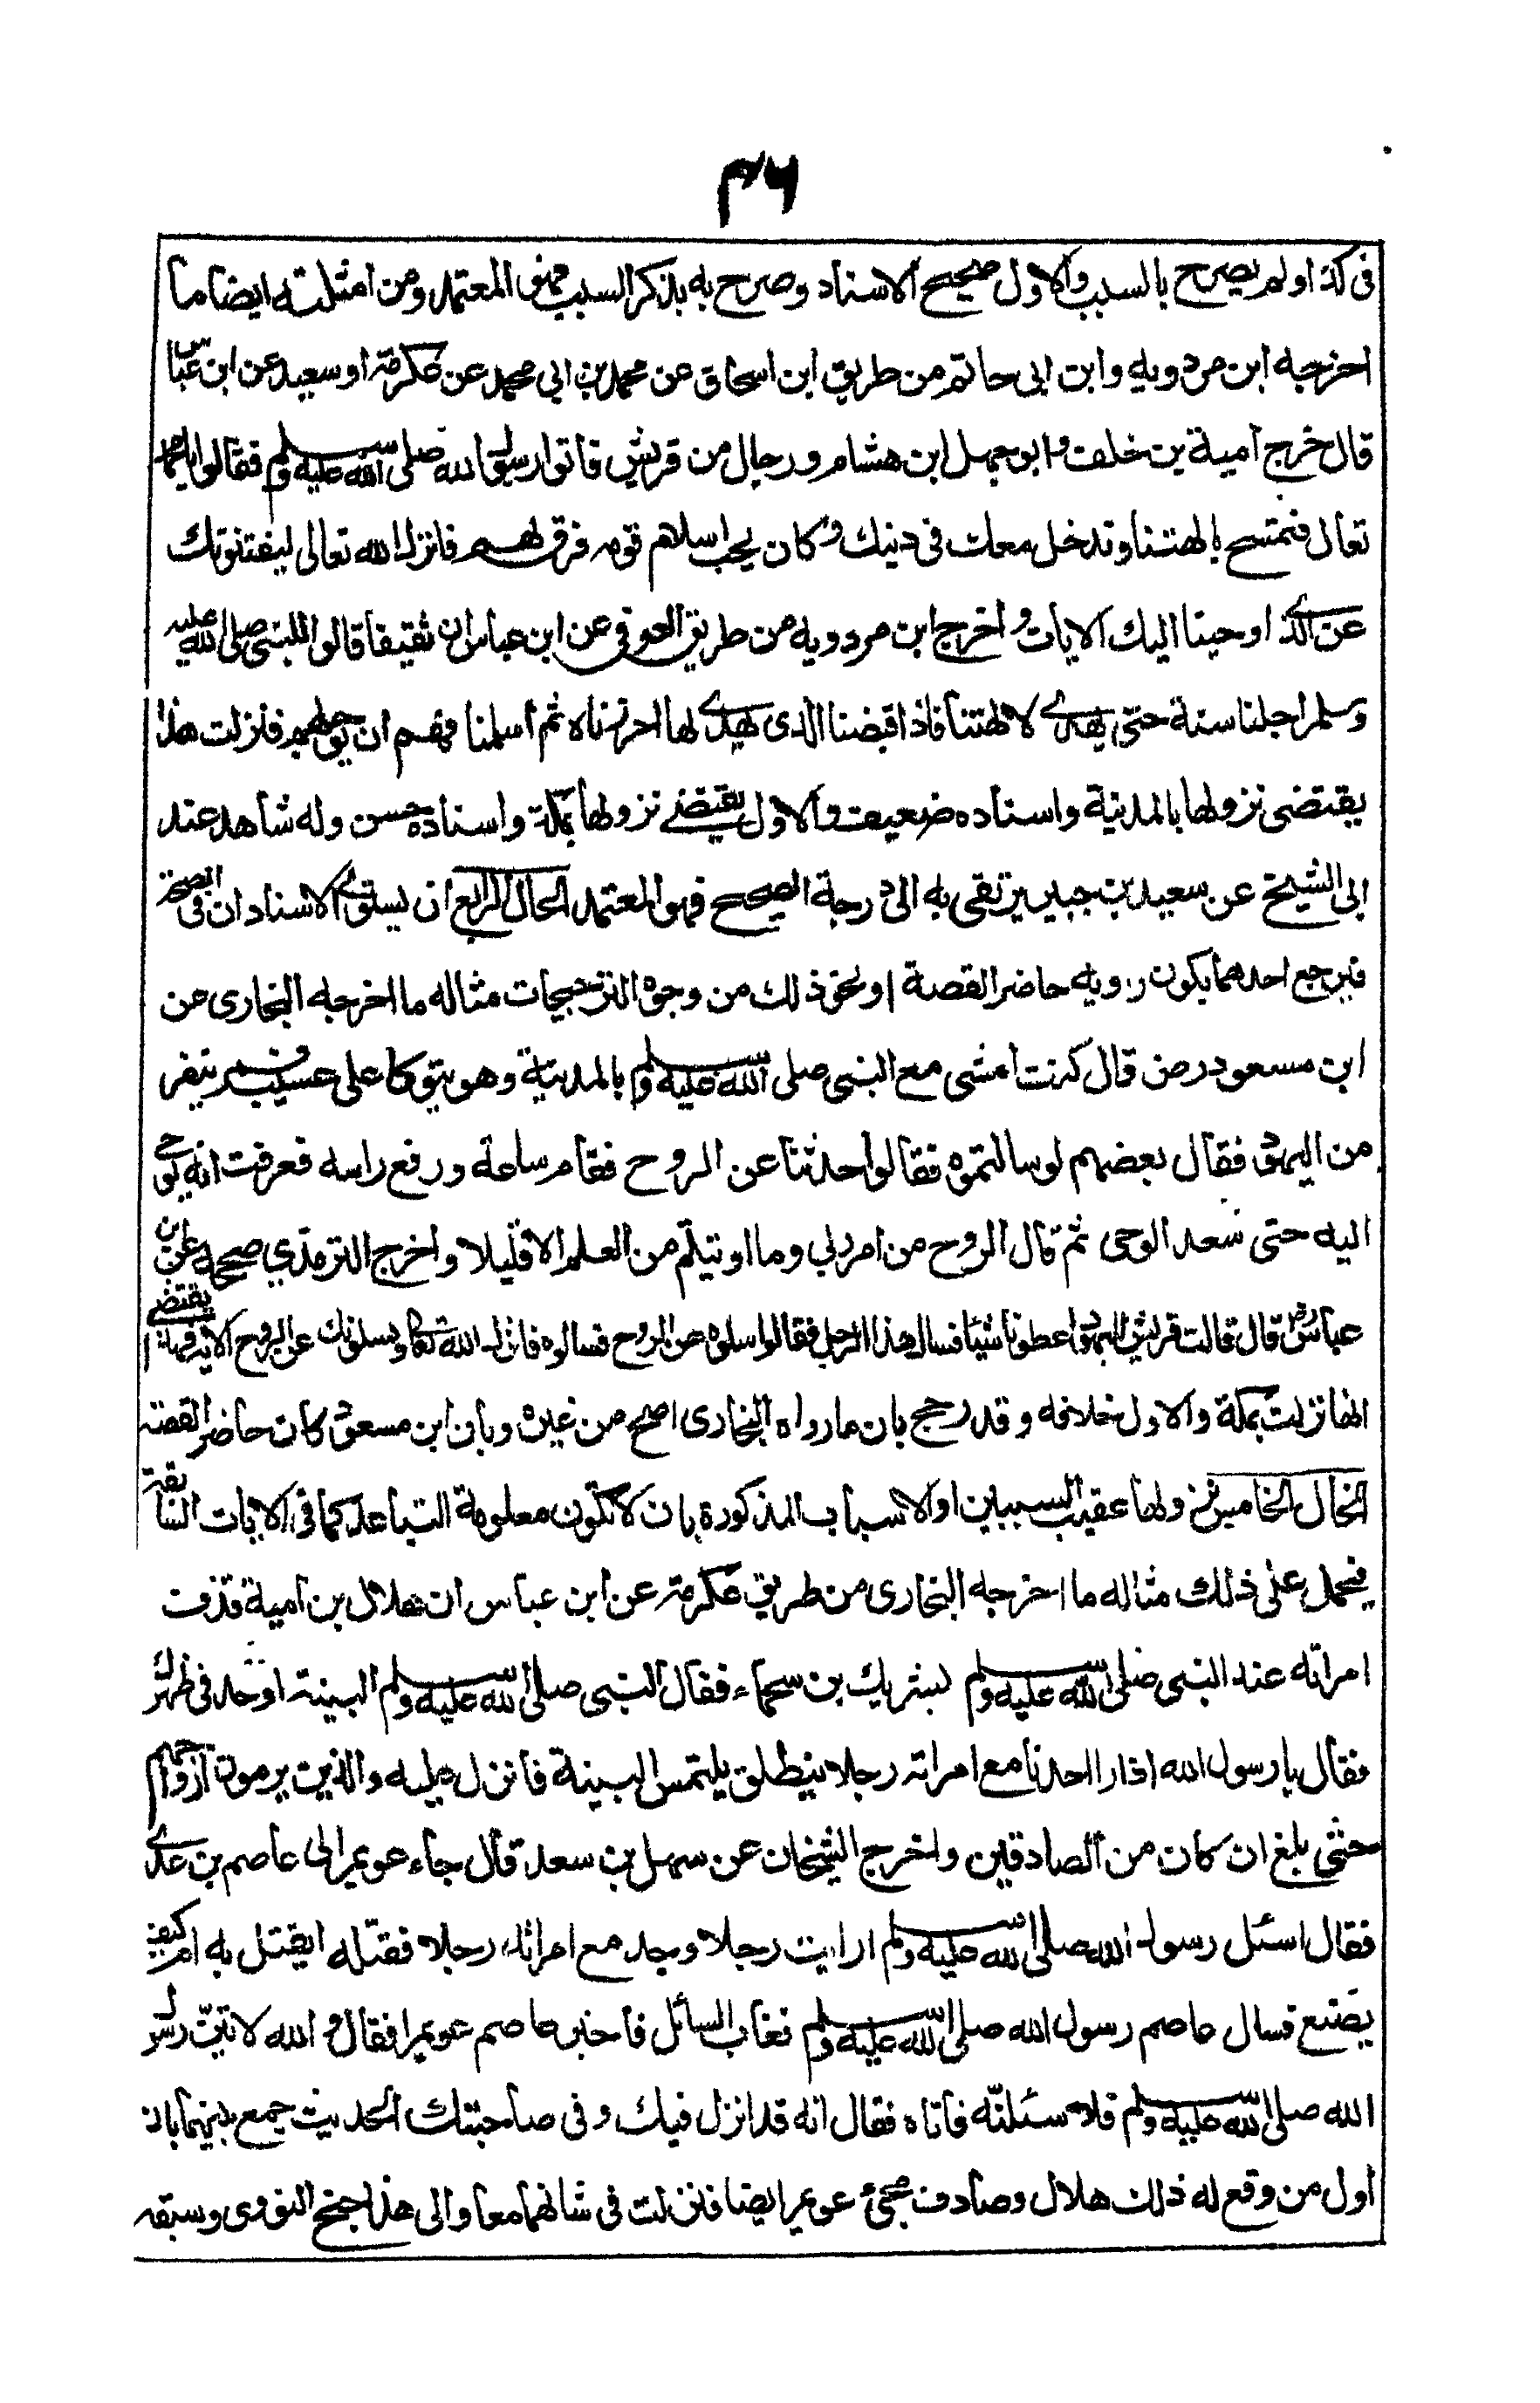 ٤٦
فى كذا ولم يصرح بالسبب والاول صحيح الاسناد وصرح به بذكر السبب فهو المعتمد ومن امثلته ايضا ما
اخرجه ابن مردويه وابن ابى حاتم من طريق ابن اسحاق عن محمد بن ابي محمد عن عكرمة او سعيد عن ابن عباس
قال خرج امية بن خلف وابو جهل ابن هشام ورجال من قريش فاتوا رسول الله صلى الله عليه ولم فقالوا يا محمد
تعال فتمسح بالهتنا وندخل معك فى دينك وكان يحب اسلام قومه فرق لهم فانزل الله تعالى ليفتنونك
عن الذى اوحينا اليك الايات واخرج ابن مردويه من طريق العوفى عن ابن عباس ان ثقيفا قالوا للنبى صلى الله عليه
وسلم اجلنا سنة حتى يهدى لالهتنا فاذا قبضنا الذى يهدى لها احرزناه ثم اسلمنا فهم ان يوجلهم فنزلت هذا
يقتضى نزولها بالمدينة واسناده ضعيف والاول يقتضى نزولها بمكة واسناده حسن وله شاهد عند
ابى الشيخ عن سعيد بن جبير يرتقى به الى درجة الصحيح فهو المعتمد الحال الرابع ان يستوى الاسنادان فى الصحة
فيرجح احدهما بكون رويه حاضر القصة او نحو ذلك من وجوه الترجيحات مثاله ما اخرجه البخارى عن
ابن مسعود رض قال كنت امشى مع النبى صلى الله عليه ولم بالمدينة وهو يتوكا على عسيب فمر بنفر
من اليهود فقال بعضهم لو سالتموه فقالوا حدثنا عن الروح فقام ساعة ورفع راسه فعرفت انه يوحى
اليه حتى سعد الوحى ثم قال الروح من امر ربي وما اوتيتم من العلم الا قليلا واخرج الترمذي صححه عن ابن
عباس رض قال قالت قريش اليهود اعطونا شيئا نسال هذا الرجل فقالوا سلوه عن الروح فسالوه فانزل الله تعالى ويسلونك عن الروح الاية فهذا يقتضى
انها نزلت بمكة والاول خلافه وقد رجح بان ما رواه البخارى اصح من غيره وبان ابن مسعود كان حاضر القصة
الحال الخامس نزولها عقيب السببين او الاسباب المذكورة بان لا تكون معلومة التباعد كما فى الايات السابقة
فيحمل على ذلك مثاله ما اخرجه البخارى من طريق عكرمة عن ابن عباس ان هلال بن امية قذف
امراته عند النبى صلى الله عليه ولم بشريك بن سحماء فقال النبى صلى الله عليه ولم البينة او حد فى ظهرك
فقال يا رسول الله اذا راى احدنا مع امراته رجلا ينطلق يلتمس البينة فانزل عليه والذين يرمون ازواجهم
حتى بلغ ان كان من الصادقين واخرج الشيخان عن سهل بن سعد قال جاء عويمر الى عاصم بن عدى
فقال اسئل رسول الله صلى الله عليه ولم ارايت رجلا وجد مع امراته رجلا فقتله ايقتل به ام كيف
يصنع فسال عاصم رسول الله صلى الله عليه ولم فعاب السائل فاخبر عاصم عويمرا فقال والله لاتين رسول
الله صلى الله عليه ولم فلا سئلنه فاتاه فقال انه قد انزل فيك وفى صاحبتك الحديث جمع بينهما بان
اول من وقع له ذلك هلال وصادف مجئ عويمر ايضا فنزلت فى شانهما معا والى هذا جنح النووى وسبقه